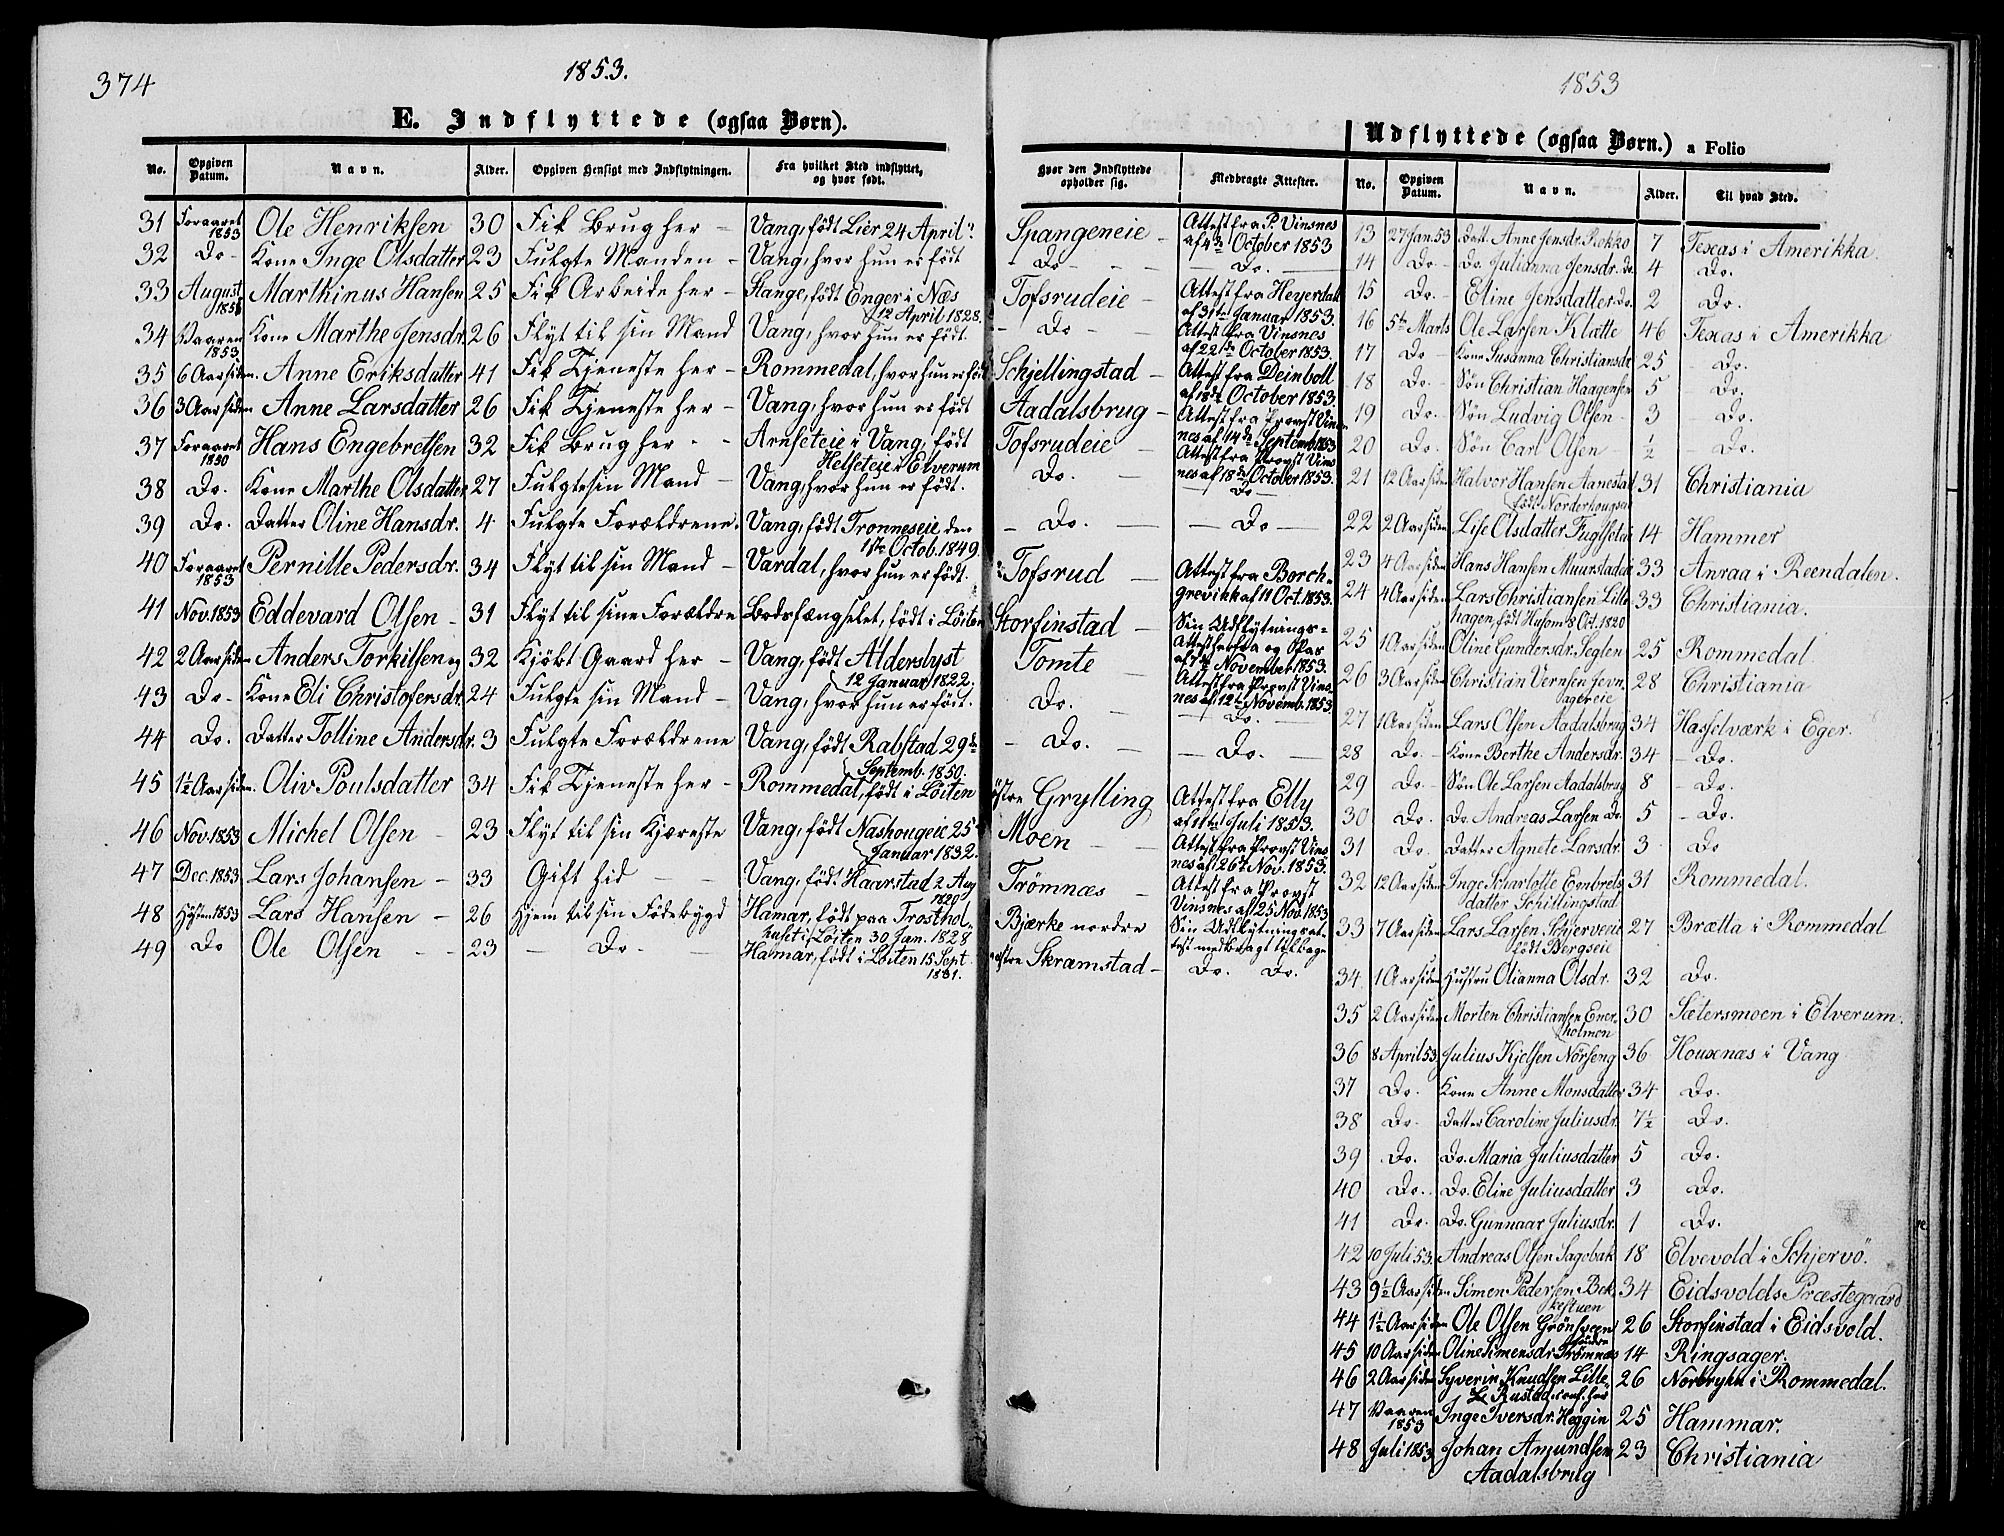 374
1853.
E. Indflyttede (ogsaa Børn).
No. | Opgiven Datum. | Navn. | Alder. | Opgiven Hensigt med Indflytningen. | Fra hvilket Sted indflyttet, og hvor født. | Hvor den Indflyttede opholder sig. | Medbragte Attester.
31 Foraaret 1853 Ole Henriksen 30 Fik Brug her - Vang, født Lier 24 April Spangeneie - Attest fra P. Vinsnes af 4de October 1853
32 Do - Kone Inge Olsdatter 23 Fulgte Manden - Vang, hvor hun er født - Do - - Do. -
33 August Marthinus Hansen 25 Fik Arbeide her - Stange, født Enger i Næs 12 April 1828. Tofsrudeie - Attest fra Heyerdal af 31te Januar 1853.
34 Vaaren 1853 Kone Marthe Jensdr. 26 Flyt til sin Mand Vang, hvor hun er født. - Do - - Attest fra Vinsnes af 22de October 1853.
35 6 Aar siden. Anne Eriksdatter 41 Fik Tjeneste her - Rommedal, hvor hun er født Schjellingstad - Attest fra Deinboll af 18de October 1853.
36 3 Aar siden Anne Larsdatter 26 Fik Tjeneste her - Vang, hvor hun er født Aadalsbrug - Attest fra Provst Vinsnes af 14de Septemb. 1853
37 Foraaret 1850 Hans Engebretsen 32 Fik Brug her - - Arnseteie i Vang, født Helseteie i Elverum Tofsrudeie - Attest fra Provst Vinsnes af 18de October 1853.
38 Do. Kone Marthe Olsdatter 27 Fulgte sin Mand - Vang, hvor hun er født. Do. - - Do -
39 Do. Datter Oline Hansdr. 4 Fulgte Forældrene. Vang, født Tronneseie den 1ste Octob. 1849 - Do. - - Do -
40 Foraaret 1853 Pernille Pedersdr. 34 Flyt til sin Mand - Vardal, hvor hun er født. Tofsrud - Attest fra Borchgrevink af 11 Oct. 1853.
41 Nov. 1853 Eddevard Olsen - 31 Flyt til sine Forældre Bodsfængselet, født i Løiten Storfinstad - Sin Udflytnings= Attest herfra og Pas af 7de November 1853.
42 2 Aar siden Anders Torkilsen og 32 Kjøbt Gaard her - Vang, født Alderslyst 12 Januar 1822. Tomte - Attest fra Provst Vinsnes af 12te Novemb. 1853.
43 Do - Kone Eli Christofersdr. 24 Fulgte sin Mand - Vang, hvor hun er født. Do. - - Do. -
44 Do. Datter Tolline Andersdr. 3 Fulgte Forældrene Vang, født Rabstad 29de Septemb. 1850. - Do. - - Do. -
45 1½ Aar siden. Oliv Poulsdatter 34 Fik Tjeneste her - Rommedal, født i Løiten østre Grylling Attest fra Elly af 11te Juli 1853.
46 Nov. 1853 Michel Olsen - 23 Flyt til sin Kjæreste Vang, født Nashougeie 25 Januar 1832. Moen - - Attest fra Provst Vinsnes af 26de Nov. 1853.
47 Dec. 1853 Lars Johansen - 33 Gift hid - - Vang, født Haarstad 2 Aug 1820 Trømnæs - Attest fra Provst Vinsnes af 25 Nov. 1853
48 Høsten 1853 Lars Hansen - 26 Hjem til sin Fødebygd Hamar, født paa Trosthol- huset i Løiten 30 Jan. 1828 Bjærke nordre Sin Udflytningsattest medbragt tilbage
49 Do Ole Olsen - - 23 - Do - - Hamar, født i Løiten 15 Sept. 1831. østre Skramstad - Do. Do.
1853
Udflyttede (ogsaa Børn.) a Folio
No. | Opgiven Datum. | Navn. | Alder. | Til hvad Sted.
13 27 Jan. 53 Datt. Anne Jensdr. Rokko 7 Texas i Amerikka.
14 Do - Do. Julianna Jensdr. Do 4 Do.
15 Do. - Eline Jensdatter. Do. 2 Do.
16 5te Marts Ole Larsen Klatte 46 Texas i Amerikka
17 Do - Kone Susanna Christiansdr 25 - Do.
18 Do. - Søn Christian Haagensen 5 - Do.
19 Do. - Søn Ludvig Olsen - 3 - Do.
20 Do. - Søn Carl Olsen ½ - Do.
21 12 Aar siden Halvor Hansen Aanestad født Norderhougseie 31 Christiania
22 2 Aar siden Lise Olsdatter Fuglseteie 14 Hammer
23 4 Aar siden Hans Hansen Muurstadeie 33 Anraa i Reendalen.
24 4 Aar siden Lars Christiansen Lillehagen, født Husom 8 Oct. 1820 33 Christiania.
25 1 Aar siden Oline Gundersdr. Seglen 25 Rommedal.
26 3 Aar siden Christian Vernsen Jevnagereie 28 Christiania
27 1 Aar siden Lars Olsen Aadalsbrug 34 Hasselværk i Eger.
28 Do. - Kone Berthe Andersdr. 34 - Do.
29 Do. - Søn Ole Larsen Aadalsbrug 8 - Do.
30 Do. Do. Andreas Larsen Do. 5 - Do.
31 Do. Datter Agnete Larsdr. 3 Do
32 12 Aar siden Inge Scharlotte Embretsdatter Schillingstad 31 Rommedal.
33 7 Aar siden Lars Larsen Schjerven født Bergseie 27 Brætta i Rommedal
34 1 Aar siden Hustru Olianna Olsdr. 32 Do.
35 2 Aar siden Morten Christiansen Enerholmen 30 Sætersmoen i Elverum.
36 8 April 53 Julius Kjelsen Nørseng 36 Housenæs i Vang
37 Do. Kone Anne Monsdatter 34 Do.
38 Do. Datter Caroline Juliusdr. 7½ Do.
39 Do. Do. Maria Juliusdatter 5 Do.
40 Do. Do. Eline Juliusdatter 3 Do.
41 Do. Do. Gunnaar Juliusdr. 1 Do.
42 10 Juli 53. Andreas Olsen Sagebak 18 Elvevold i Schjervö.
43 9½ Aar siden Simen Pedersen Bekkestuen 34 Eidsvolds Præstegaard
44 1½ Aar siden Ole Olsen Grönsveen 26 Storfinstad i Eidsvold.
45 10 Aar siden Oline Simensdr. Trømnæs søndre 14 Ringsager.
46 2 Aar siden Syverin Knudsen Lille Rustad, conf. her 26 Norbryhn i Rommedal.
47 Vaaren 1853 Inge Iversdr. Heggin 25 Hammar.
48 Juli 1853 Johan Amundsen Aadalsbrug 23 Christiania